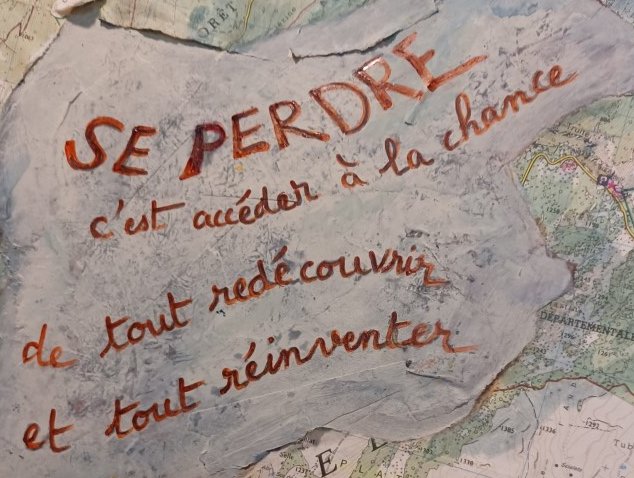 SE PERDRE
c'est accéder à la chance
de tout redécouvrir
et tout réinventer
ORÊT
DÉPARTEMENTALE
1292
1336
1385